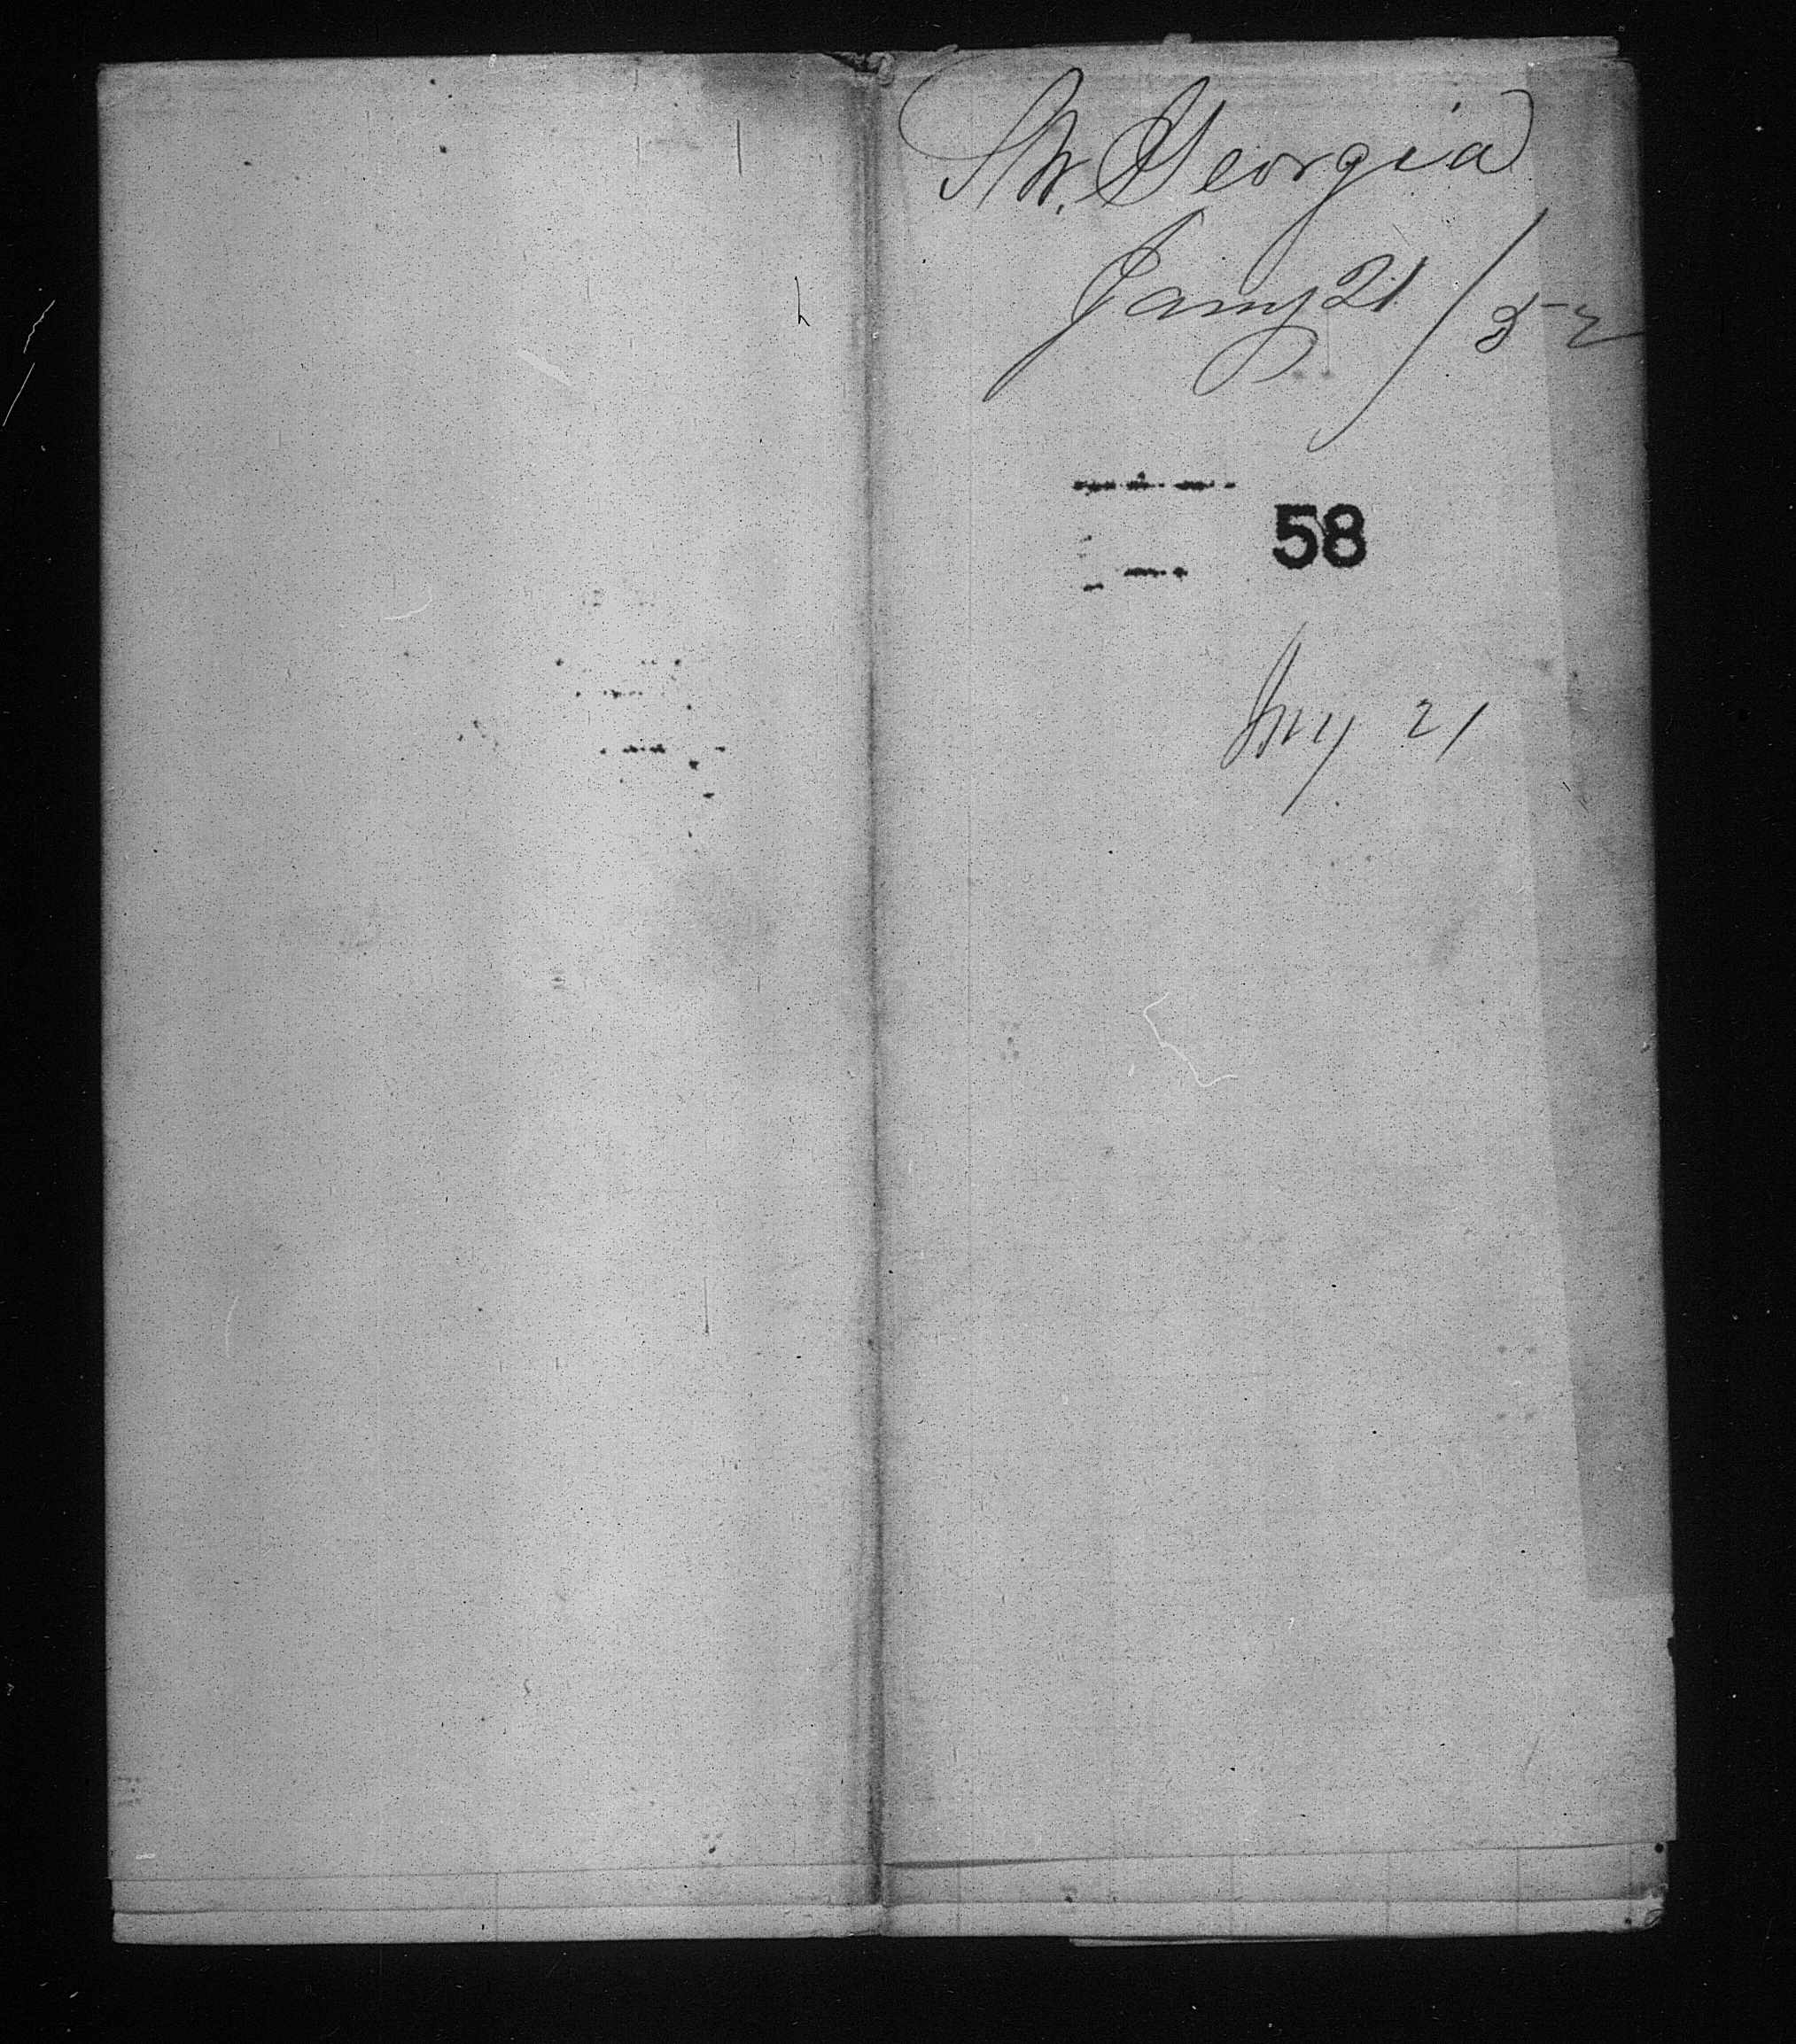 Str. Georgia
Jany 21/52
58
Jny 21